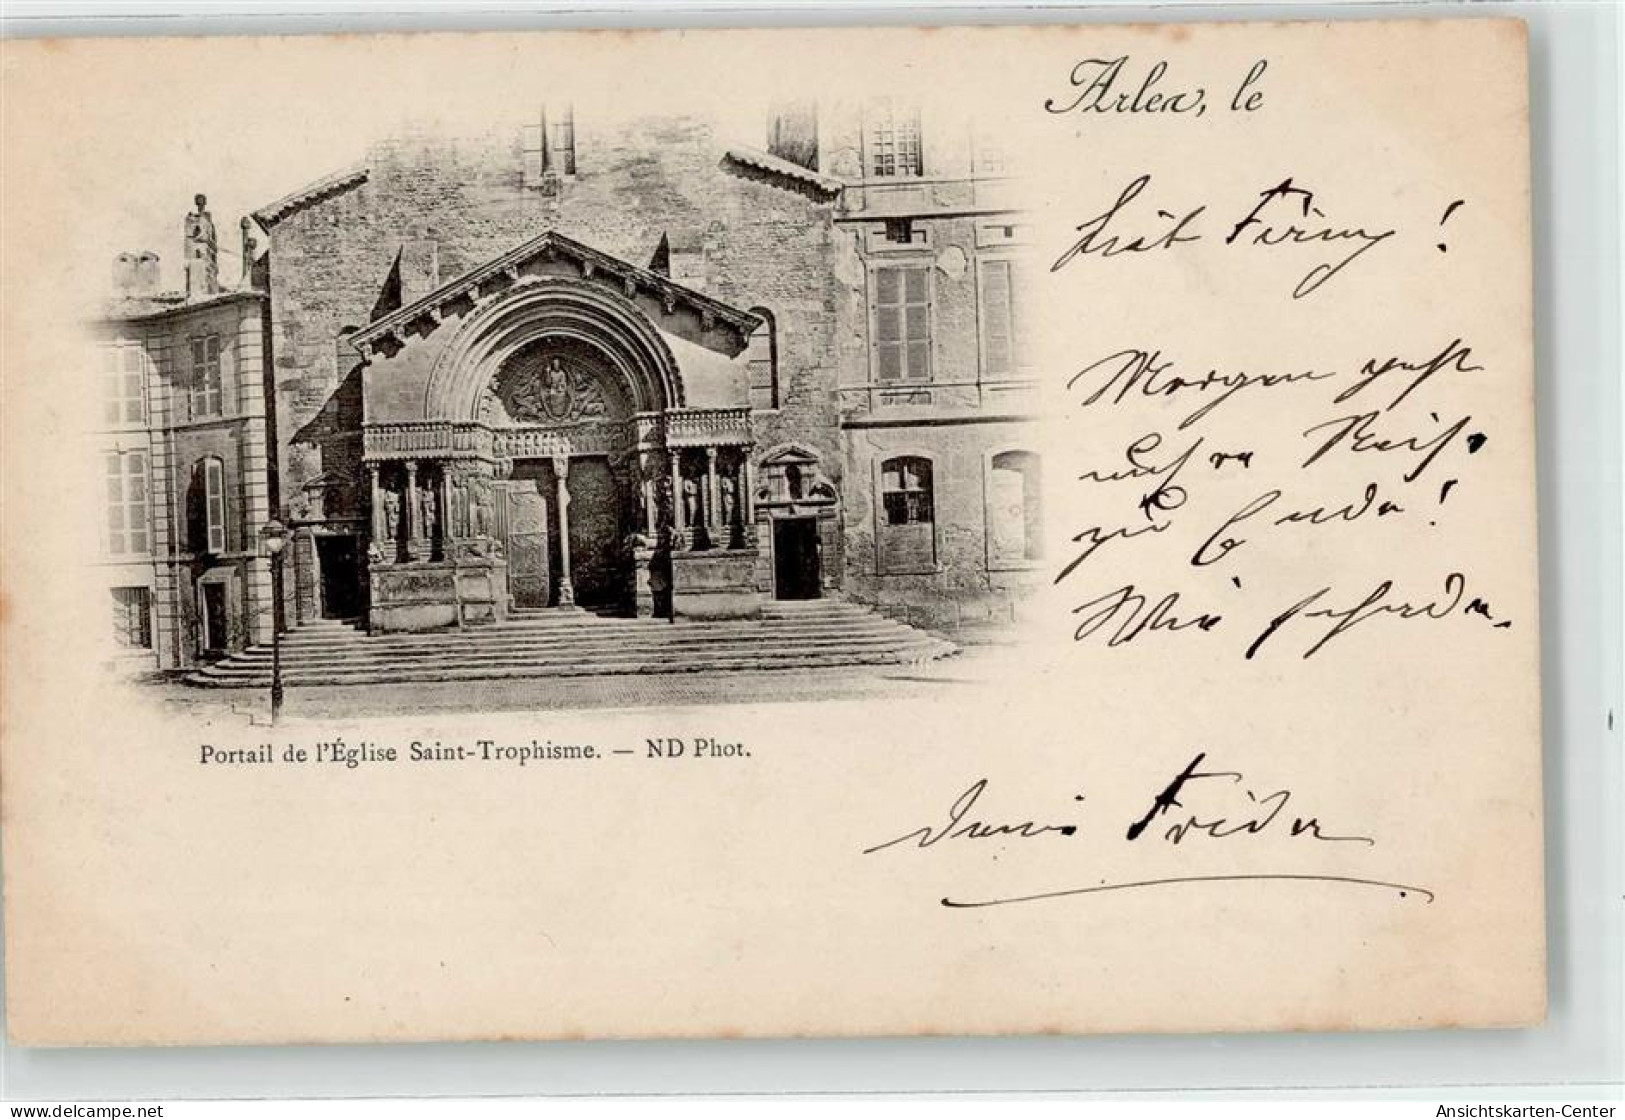 Arles, le
Morgen geht
unsere Reise
zu Ende!
Wie schade.
Portail de l'Église Saint-Trophisme. — ND Phot.
Deine Frieda
www.delcampe.net
Ansichtskarten-Center